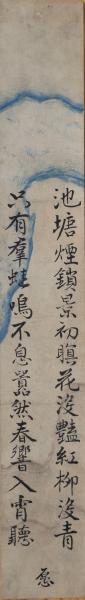 池塘煙鎖景初暝花没豔紅柳没青
只有羣蛙鳴不息囂然春響入宵聽